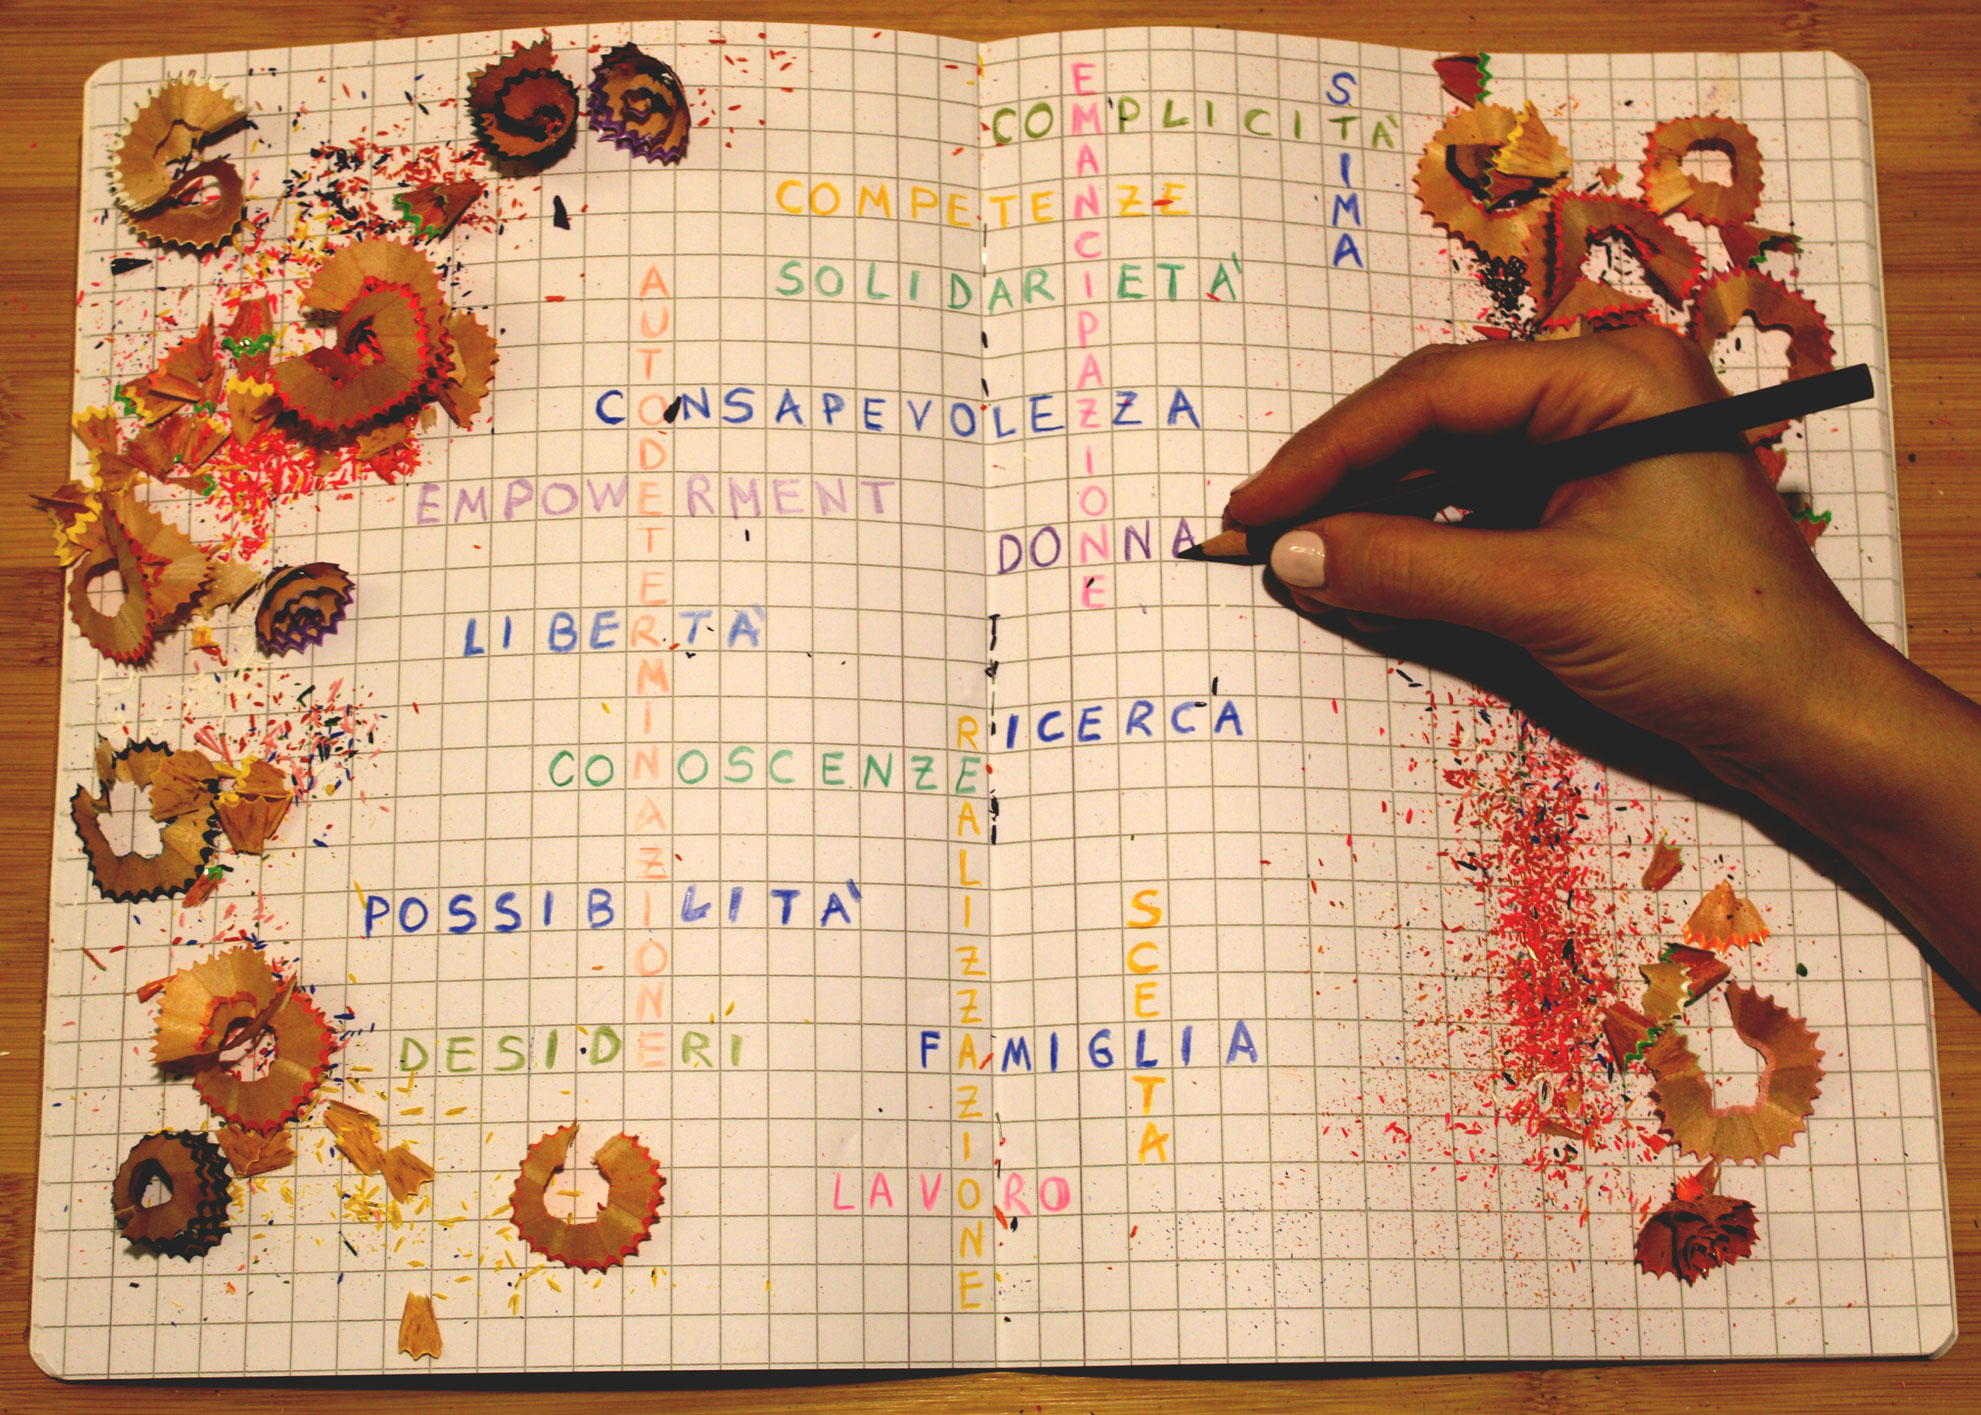 EMANCIPAZIONE
STIMA
COMPLICITÀ
COMPETENZE
SOLIDARIETÀ
AUTODETERMINAZIONE
CONSAPEVOLEZZA
EMPOWERMENT
DONNA
LIBERTÀ
RICERCA
REALIZZAZIONE
CONOSCENZE
POSSIBILITÀ
SCELTA
DESIDERI
FAMIGLIA
LAVORO